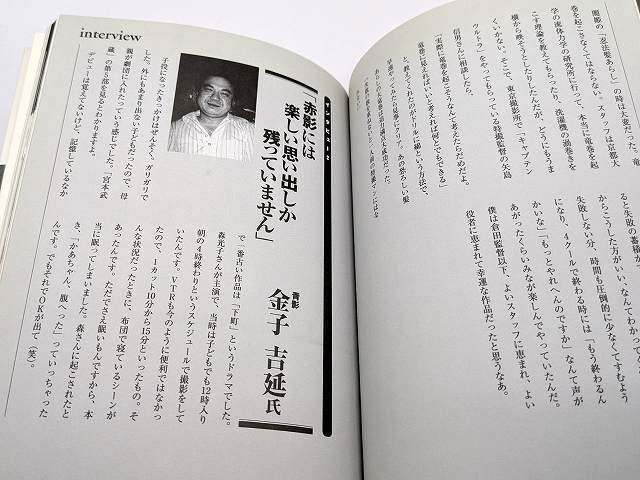 闇姫の「忍法髪あらし」の時は大変だった。竜
巻を起こさなくてはならない。スタッフは京都大
学の流体力学の研究所に行って、本当に竜巻を起
こす理論を教えてもらったり、洗濯機の渦巻きを
横から映そうとしたりしたんだが、どうにもうま
くいかない。そこで、東京撮影所で「キャプテン
ウルトラ」をやってもらっている特撮監督の矢島
信男さんに相談したら、
「実際に竜巻を起こそうなんて考えたらだめだよ。
竜巻に見えればいいと考えれば何とでもできる」
と、教えてくれたのが
ると失敗の蓄積が
からこうした方がいい、なんてわかって
失敗しない分、時間も圧倒的に少なくてすむよう
になり、4クールで終わる時には「もう終わるん
かいな」「もっとやれへんのですか」なんて声が
あがったくらいみなが楽しんでやっていたんだ。
僕は倉田監督以下、よいスタッフに恵まれ、よい
役者に恵まれて幸運な作品だったと思うなあ。
interview
インタビュー2
「赤影には
楽しい思い出しか
残っていません」
青影
金子 吉延氏
子役になったきっかけはぜんそく。ガリガリで
した。外にもあまり出ない子どもだったので、母
親が劇団に入れたっていう感じでした。「宮本武
蔵」の第5部を見るとわかりますよ。
デビューは覚えてないけど、記憶しているなか
で一番古い作品は「下町」というドラマでした。
森光子さんが主演で、当時は子どもでも12時入り
朝の4時終わりというスケジュールで撮影をして
いたんです。VTRも今のように便利ではなかっ
たので、1カット10分から15分といったもの。そ
んな状況だったときに、布団で寝ているシーンが
あったんです。ただでさえ眠いもんですから、本
当に眠ってしまいました。森さんに起こされたと
き、「かあちゃん、腹へった」っていっちゃった
んです。でもそれでOKが出て(笑)。